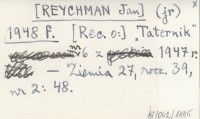 [REYCHMAN Jan] (jr)
1948 r. [Rec. o:] "Taternik"
nr 6 z 1947 r.
— Ziemia 27, rocz. 39,
nr 2: 48.